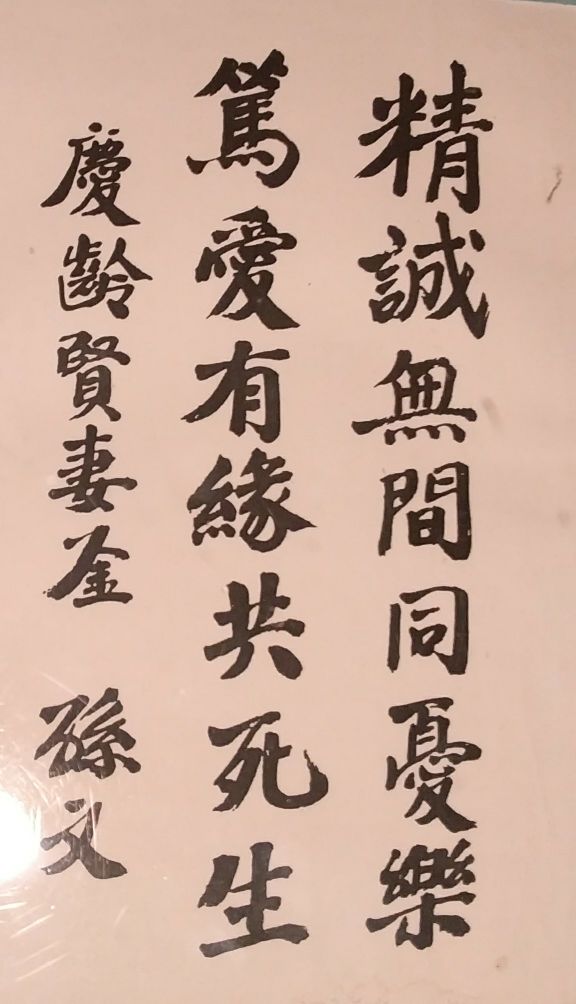 精誠無間同憂樂
篤愛有緣共死生
慶齡賢妻鋻 孫文